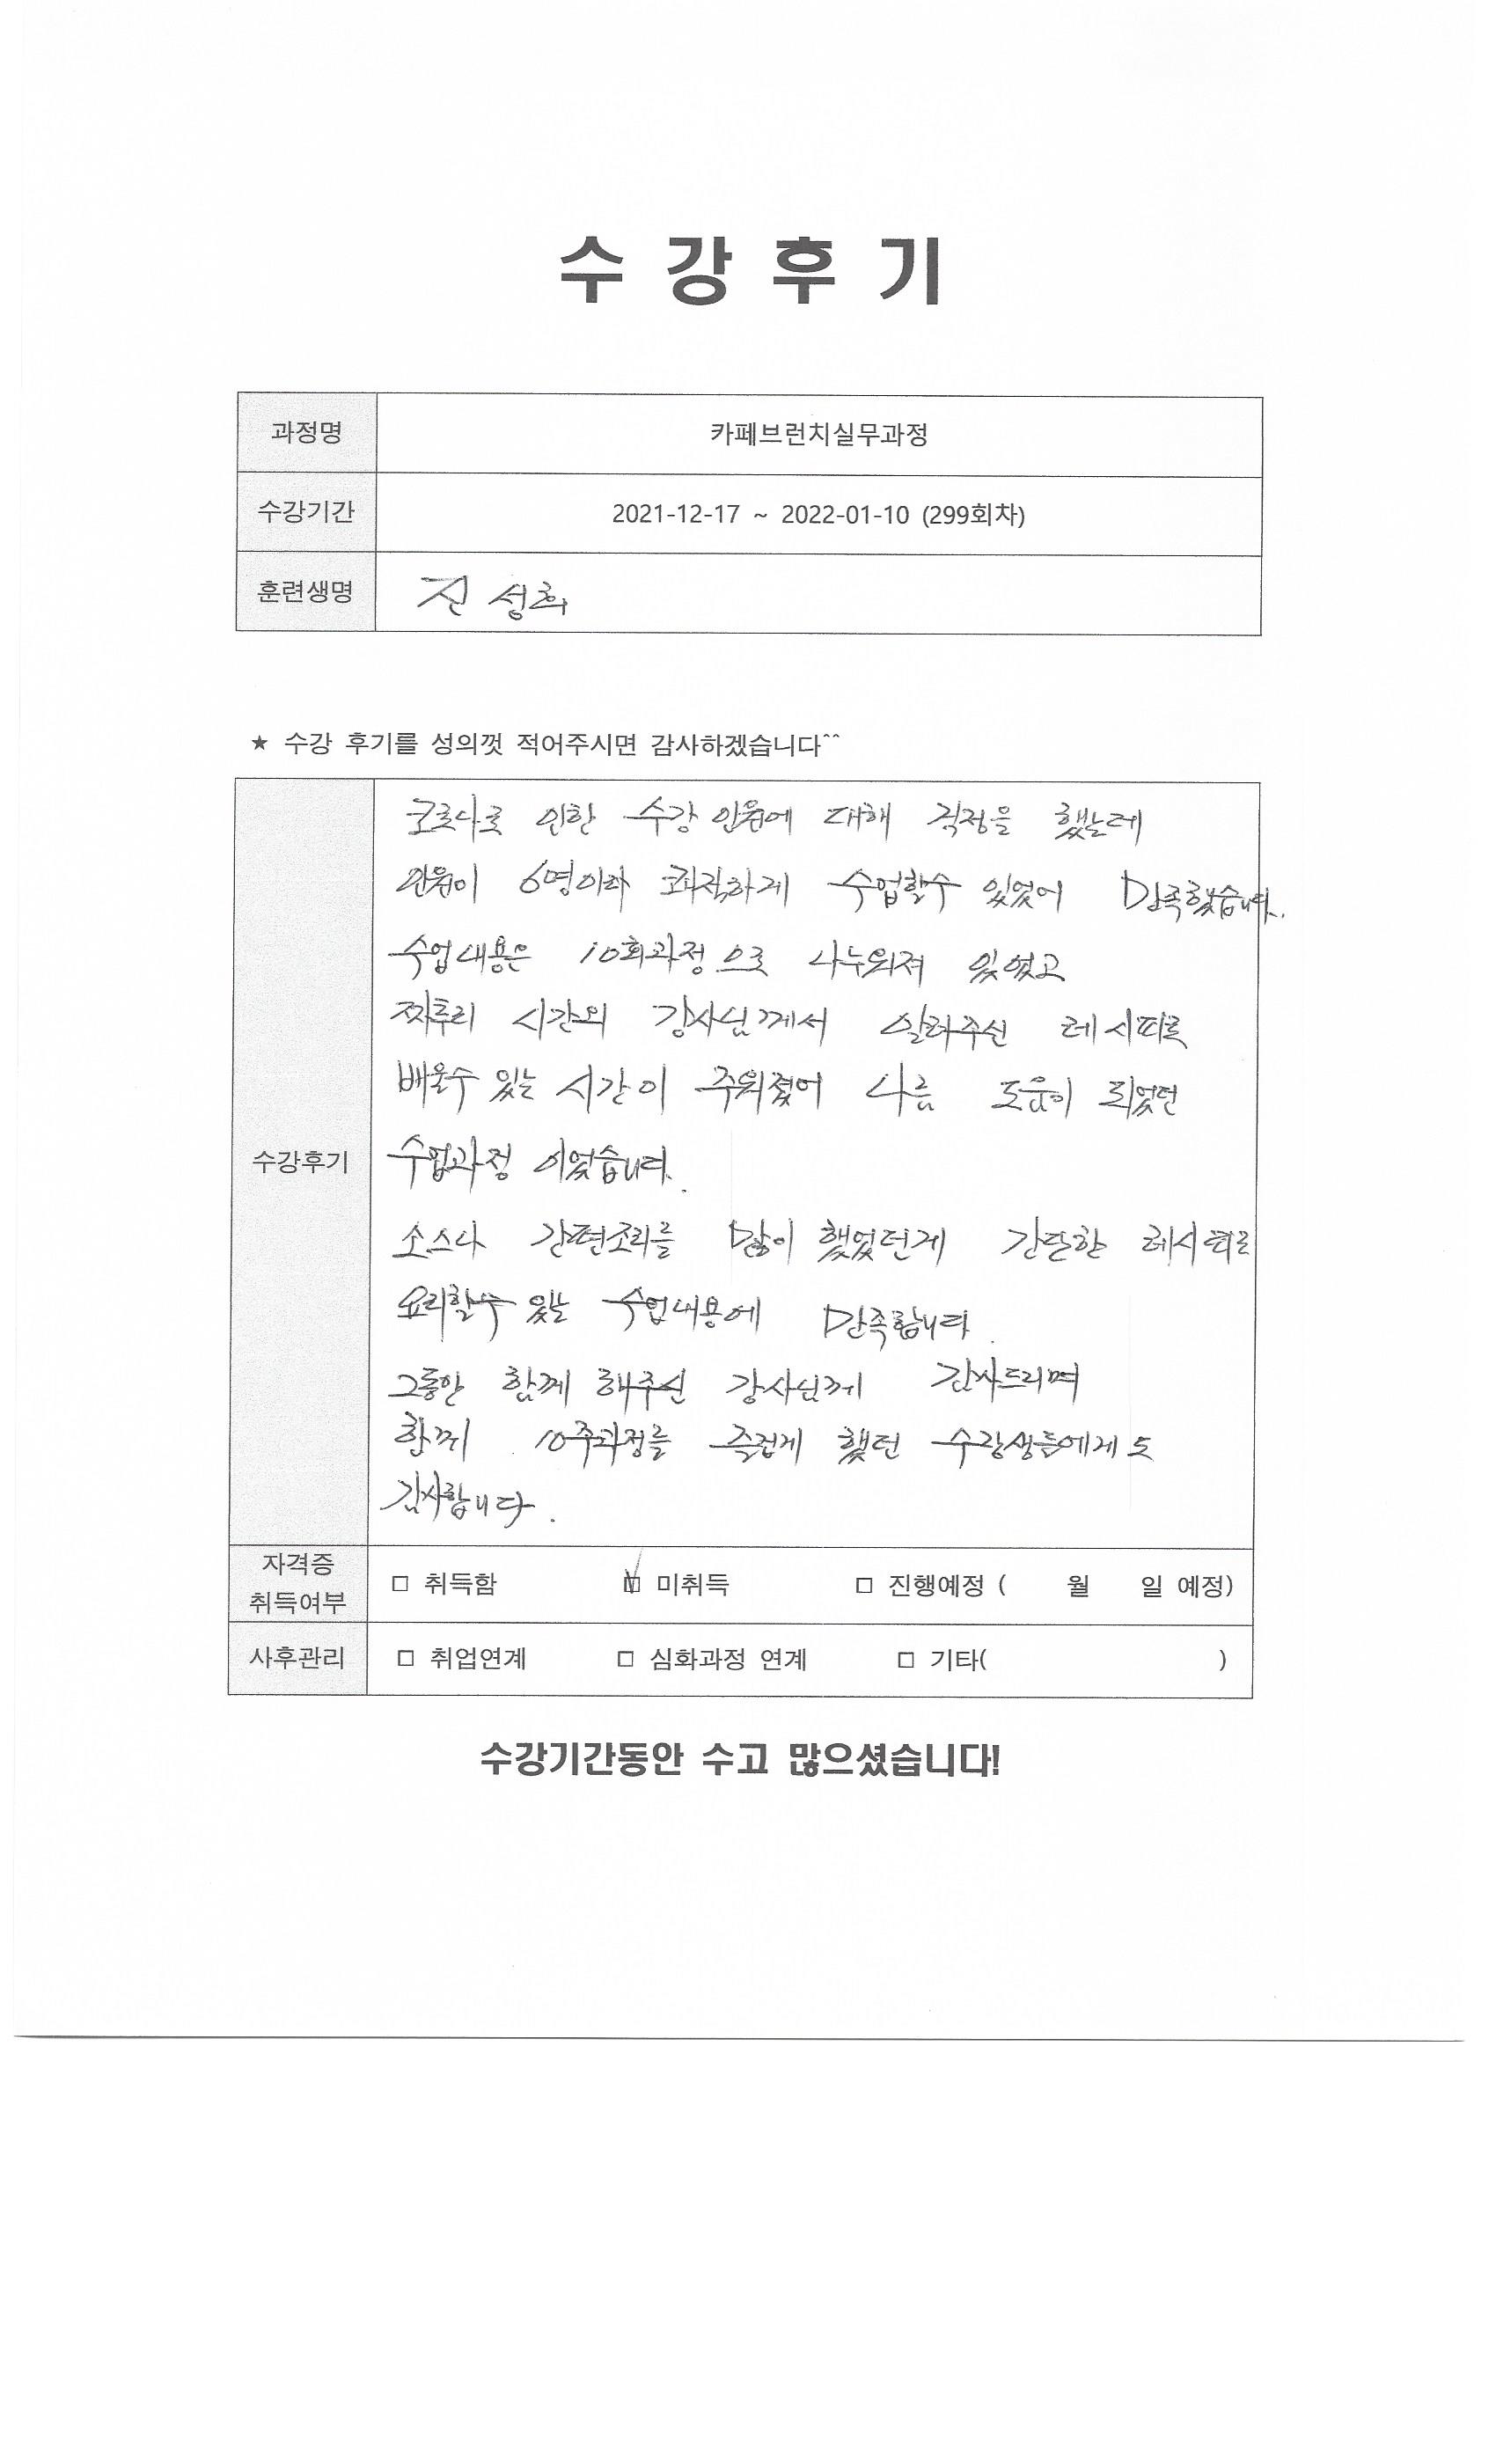 수 강 후 기
과정명 카페브런치실무과정
수강기간 2021-12-17 ~ 2022-01-10 (299회차)
훈련생명 진 성희
★ 수강 후기를 성의껏 적어주시면 감사하겠습니다^^
수강후기
코로나로 인한 수강 인원에 대해 걱정을 했는데
인원이 6명이라 쾌적하게 수업할수 있었어 만족했습니다.
수업내용은 10회과정으로 나누워져 있었고
짜투리 시간의 강사님께서 알려주신 레시피로
배울수 있는 시간이 주워졌어 나름 도움이 되었던
수업과정 이었습니다.
소스나 간편조리를 많이 했었던게 간단한 레시피로
요리할수 있는 수업내용에 만족합니다.
그동안 함께 해주신 강사님께 감사드리며
함께 10주과정을 즐겁게 했던 수강생들에게도
감사합니다.
자격증
취득여부 □ 취득함 ☑ 미취득 □ 진행예정 ( 월 일 예정)
사후관리 □ 취업연계 □ 심화과정 연계 □ 기타( )
수강기간동안 수고 많으셨습니다!